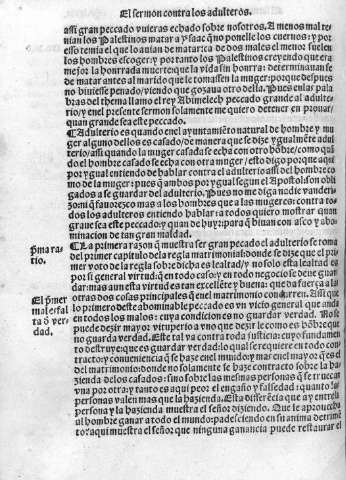 El sermon contra los adulteros.
assi gran peccado vuieras echado sobre nosotros. A menos mal te
nian los Palestinos matar a ysaac q̃ no ponelle los cuernos: y por
esso temia el que lo auian de matar: ca de dos males el menor suelen
los hombres escoger: y por tanto los Palestinos creyendo que era
mejor la honrrada muerte que la vida sin honrra: determinauan se
de matar antes al marido que le tomassen la muger: porque despues
no biuiesse penado, viendo que gozaua otro della. Pues en las pala
bras del thema llamo el rey Abimelech peccado grande al adulte
rio, y en el presente sermon solamente me quiero detener en prouar,
quan grande sea este peccado.
¶ Adulterio es quando en el ayuntamiẽto natural de hombre y mu
ger alguno dellos es casado/de manera que se dize ygualmẽte adul
terio/assi quando la muger casada se echa con otro hõbre/como quã
do el hombre casado se echa con otra muger/esto digo porque aqui
por ygual entiendo de hablar contra el adulterio assi del hombre co
mo de la muger: pues q̃ ambos por ygual segun el Apostol son obli
gados a se guardar del adulterio. Pues no me diga nadie vanderi
zo: ni q̃ fauorezco mas a los hombres que a las mugeres: contra to
dos los adulteros entiendo hablar: a todos quiero mostrar quan
graue sea este peccado: y quan de huyr: para q̃ biuan con asco y abo
minacion de tan gran maldad.
p̃ma ra-
tio.
¶ La primera razon q̃ muestra ser gran peccado el adulterio se toma
del primer capitulo de la regla matrimonial: donde se dize que el pri
mer voto de la regla sobredicha es lealtad/y no solo esta lealtad es
por si general virtud: q̃ en todo caso/y en todo negocio se deue guar
dar: mas aun esta virtud es tan excellẽte y buena: que da fuerça a las
El p̃mer
mal es fal
ta ð ver-
dad.
otras dos cosas principales q̃ enel matrimonio concurren. Assi que
lo primero deste abominable peccado es vn vicio general que anda
en todos los malos: cuya condicion es no guardar verdad. No se
puede dezir mayor vituperio a vno que dezir le como es hõbre que
no guarda verdad. Este tal va contra toda justicia: cuyo fundamen
to destruye: que es guardar verdad: lo qual se requiere en todo con
tracto: y conueniencia q̃ se haze enel mundo: y mar enel mayor q̃ es el
del matrimonio: donde no solamente se haze contracto sobre la ha
zienda delos casados: sino sobre las mismas personas q̃ se truecan
vna por otra: y tanto es aqui peor el engaño y falsedad: quanto las
personas valen mas que la hazienda. Esta differẽcia que ay entre la
persona y la hazienda muestra el señor diziendo. Que le aprouecha
al hombre ganar a todo el mundo: padesciendo en su anima detrimẽ
to: aqui muestra el señor que ninguna ganancia puede restaurar el